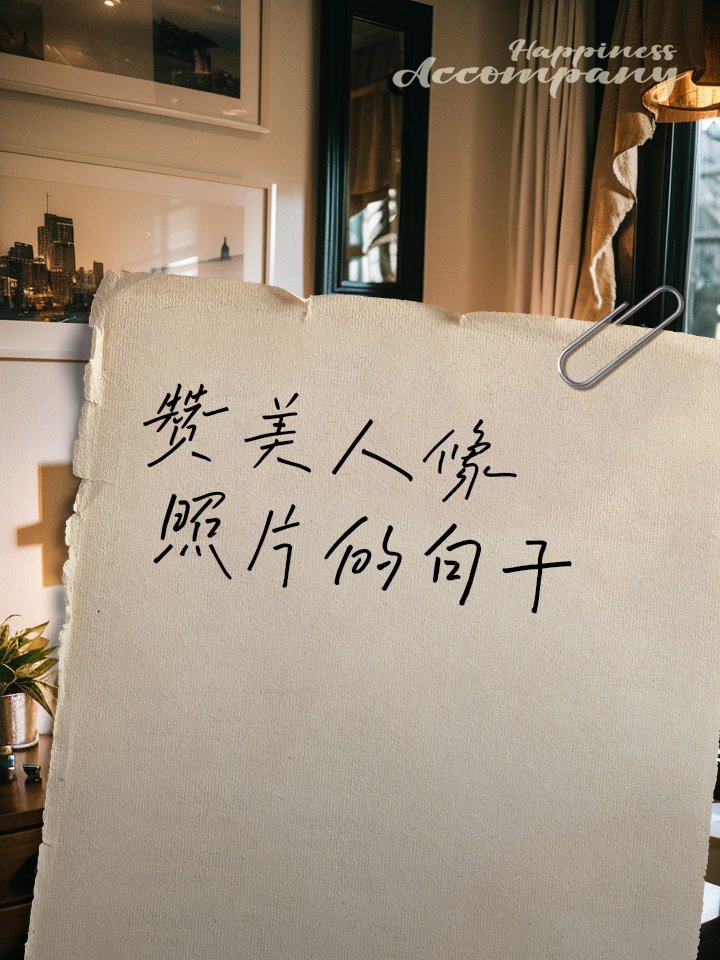 Happiness
Accompany
赞美人像
照片的句子